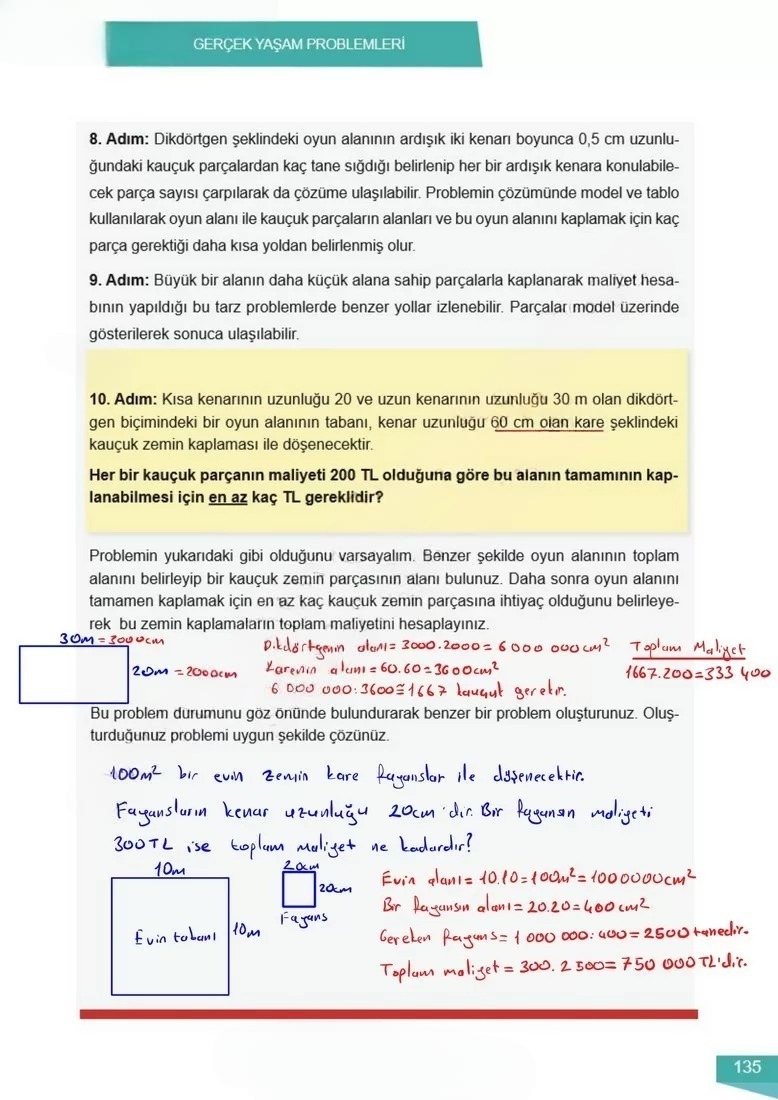 GERÇEK YAŞAM PROBLEMLERİ
8. Adım: Dikdörtgen şeklindeki oyun alanının ardışık iki kenarı boyunca 0,5 cm uzunlu-
ğundaki kauçuk parçalardan kaç tane sığdığı belirlenip her bir ardışık kenara konulabile-
cek parça sayısı çarpılarak da çözüme ulaşılabilir. Problemin çözümünde model ve tablo
kullanılarak oyun alanı ile kauçuk parçaların alanları ve bu oyun alanını kaplamak için kaç
parça gerektiği daha kısa yoldan belirlenmiş olur.
9. Adım: Büyük bir alanın daha küçük alana sahip parçalarla kaplanarak maliyet hesa-
bının yapıldığı bu tarz problemlerde benzer yollar izlenebilir. Parçalar model üzerinde
gösterilerek sonuca ulaşılabilir.
10. Adım: Kısa kenarının uzunluğu 20 ve uzun kenarının uzunluğu 30 m olan dikdört-
gen biçimindeki bir oyun alanının tabanı, kenar uzunluğu 60 cm olan kare şeklindeki
kauçuk zemin kaplaması ile döşenecektir.
Her bir kauçuk parçanın maliyeti 200 TL olduğuna göre bu alanın tamamının kap-
lanabilmesi için en az kaç TL gereklidir?
Problemin yukarıdaki gibi olduğunu varsayalım. Benzer şekilde oyun alanının toplam
alanını belirleyip bir kauçuk zemin parçasının alanı bulunuz. Daha sonra oyun alanını
tamamen kaplamak için en az kaç kauçuk zemin parçasına ihtiyaç olduğunu belirleye-
rek bu zemin kaplamaların toplam maliyetini hesaplayınız.
30m = 3000cm
20m = 2000cm
Dikdörtgenin alanı = 3000.2000 = 6 000 000 cm²
Karenin alanı = 60.60 = 3600cm²
6 000 000:3600≅1667 kauçuk gerekir.
Toplam Maliyet
1667.200=333 400
Bu problem durumunu göz önünde bulundurarak benzer bir problem oluşturunuz. Oluş-
turduğunuz problemi uygun şekilde çözünüz.
100m² bir evin zemin kare fayanslar ile döşenecektir.
Fayansların kenar uzunluğu 20cm'dir. Bir fayansın maliyeti
300TL ise toplam maliyet ne kadardır?
10m
10m
Evin tabanı
20cm
20cm
Fayans
Evin alanı = 10.10=100m²=1000000cm²
Bir fayansın alanı = 20.20=400cm²
Gereken fayans = 1 000 000:400=2500 tanedir.
Toplam maliyet = 300.2500=750 000 TL'dir.
135